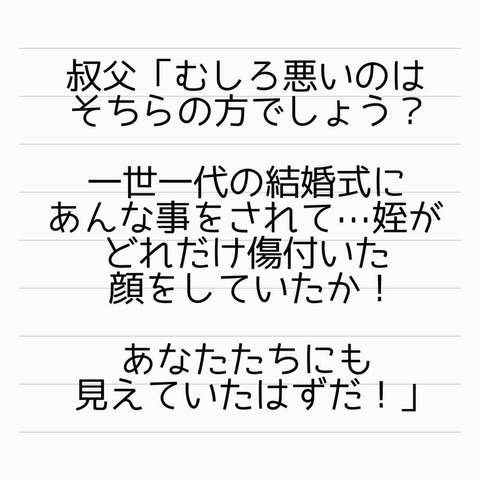 叔父「むしろ悪いのは
そちらの方でしょう？
一世一代の結婚式に
あんな事をされて…姪が
どれだけ傷付いた
顔をしていたか！
あなたたちにも
見えていたはずだ！」